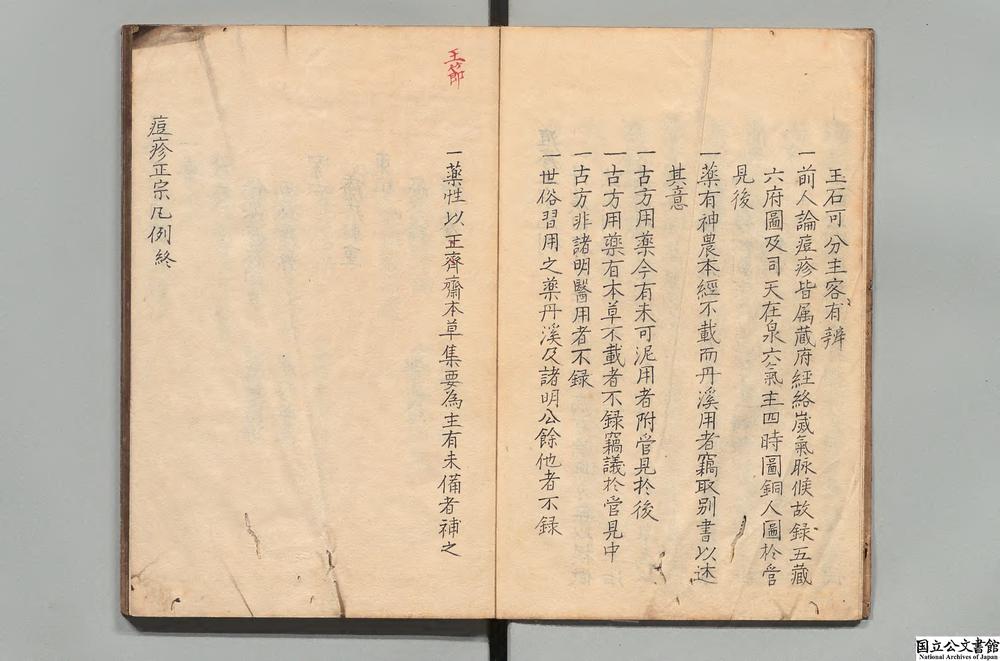 玉石可分主客有辨
一前人論痘疹皆属藏府経絡歲氣脉候故録五藏
六府圖及司天在泉六氣主四時圖銅人圖於管
見後
一藥有神農本經不載而丹溪用者竊取别書以述
其意
一古方用藥今有未可泥用者附管見於後
一古方用藥有本草不載者不録竊議於管見中
一古方非諸明醫用者不録
一世俗習用之藥丹溪及諸明公餘他者不録
王節
一藥性以王齊齋本草集要為主有未備者補之
痘疹正宗凡例終
国立公文書館
National Archives of Japan